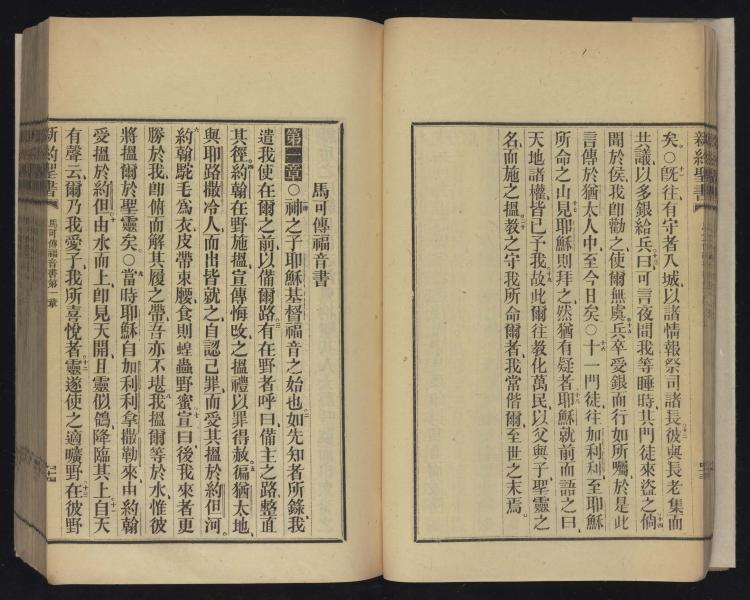 新約聖書
矣○既往有守者入城、以諸情報祭司諸長、彼與長老集而
共議、以多銀給兵曰、可言夜間我等睡時、其門徒來盜之、倘
聞於侯、我卽勸之、使爾無虞、兵卒受銀而行、如所囑、於是此
言傳於猶太人中、至今日矣○十一門徒往加利利、至耶穌
所命之山、見耶穌則拜之、然猶有疑者、耶穌就前而語之曰、
天地諸權、皆已予我、故此爾往教化萬民、以父與子聖靈之
名、而施之搵、教之守我所命爾者、我常偕爾、至世之末焉。
馬可傳福音書
第一章○神之子耶穌基督福音之始也、如先知者所錄、我
遣我使在爾之前、以備爾路、有在野者呼曰、備主之路、整直
其徑、約翰在野施搵、宣傳悔改之搵禮、以罪得赦、徧猶太地、
與耶路撒冷人、而出皆就之、自認己罪、而受其搵於約但河。
約翰駝毛爲衣、皮帶束腰、食則蝗蟲野蜜、宣曰、後我來者更
勝於我、卽俯而解其履之帶、吾亦不堪、我搵爾等於水、惟彼
將搵爾於聖靈矣○當時耶穌自加利利拿撒勒來、由約翰
愛搵於約但、由水而上、卽見天開、且靈似鴿、降臨其上、自天
有聲云、爾乃我愛子、我所喜悅者、靈遂使之適曠野、在彼野
新約聖書
馬可傳福音書第一章